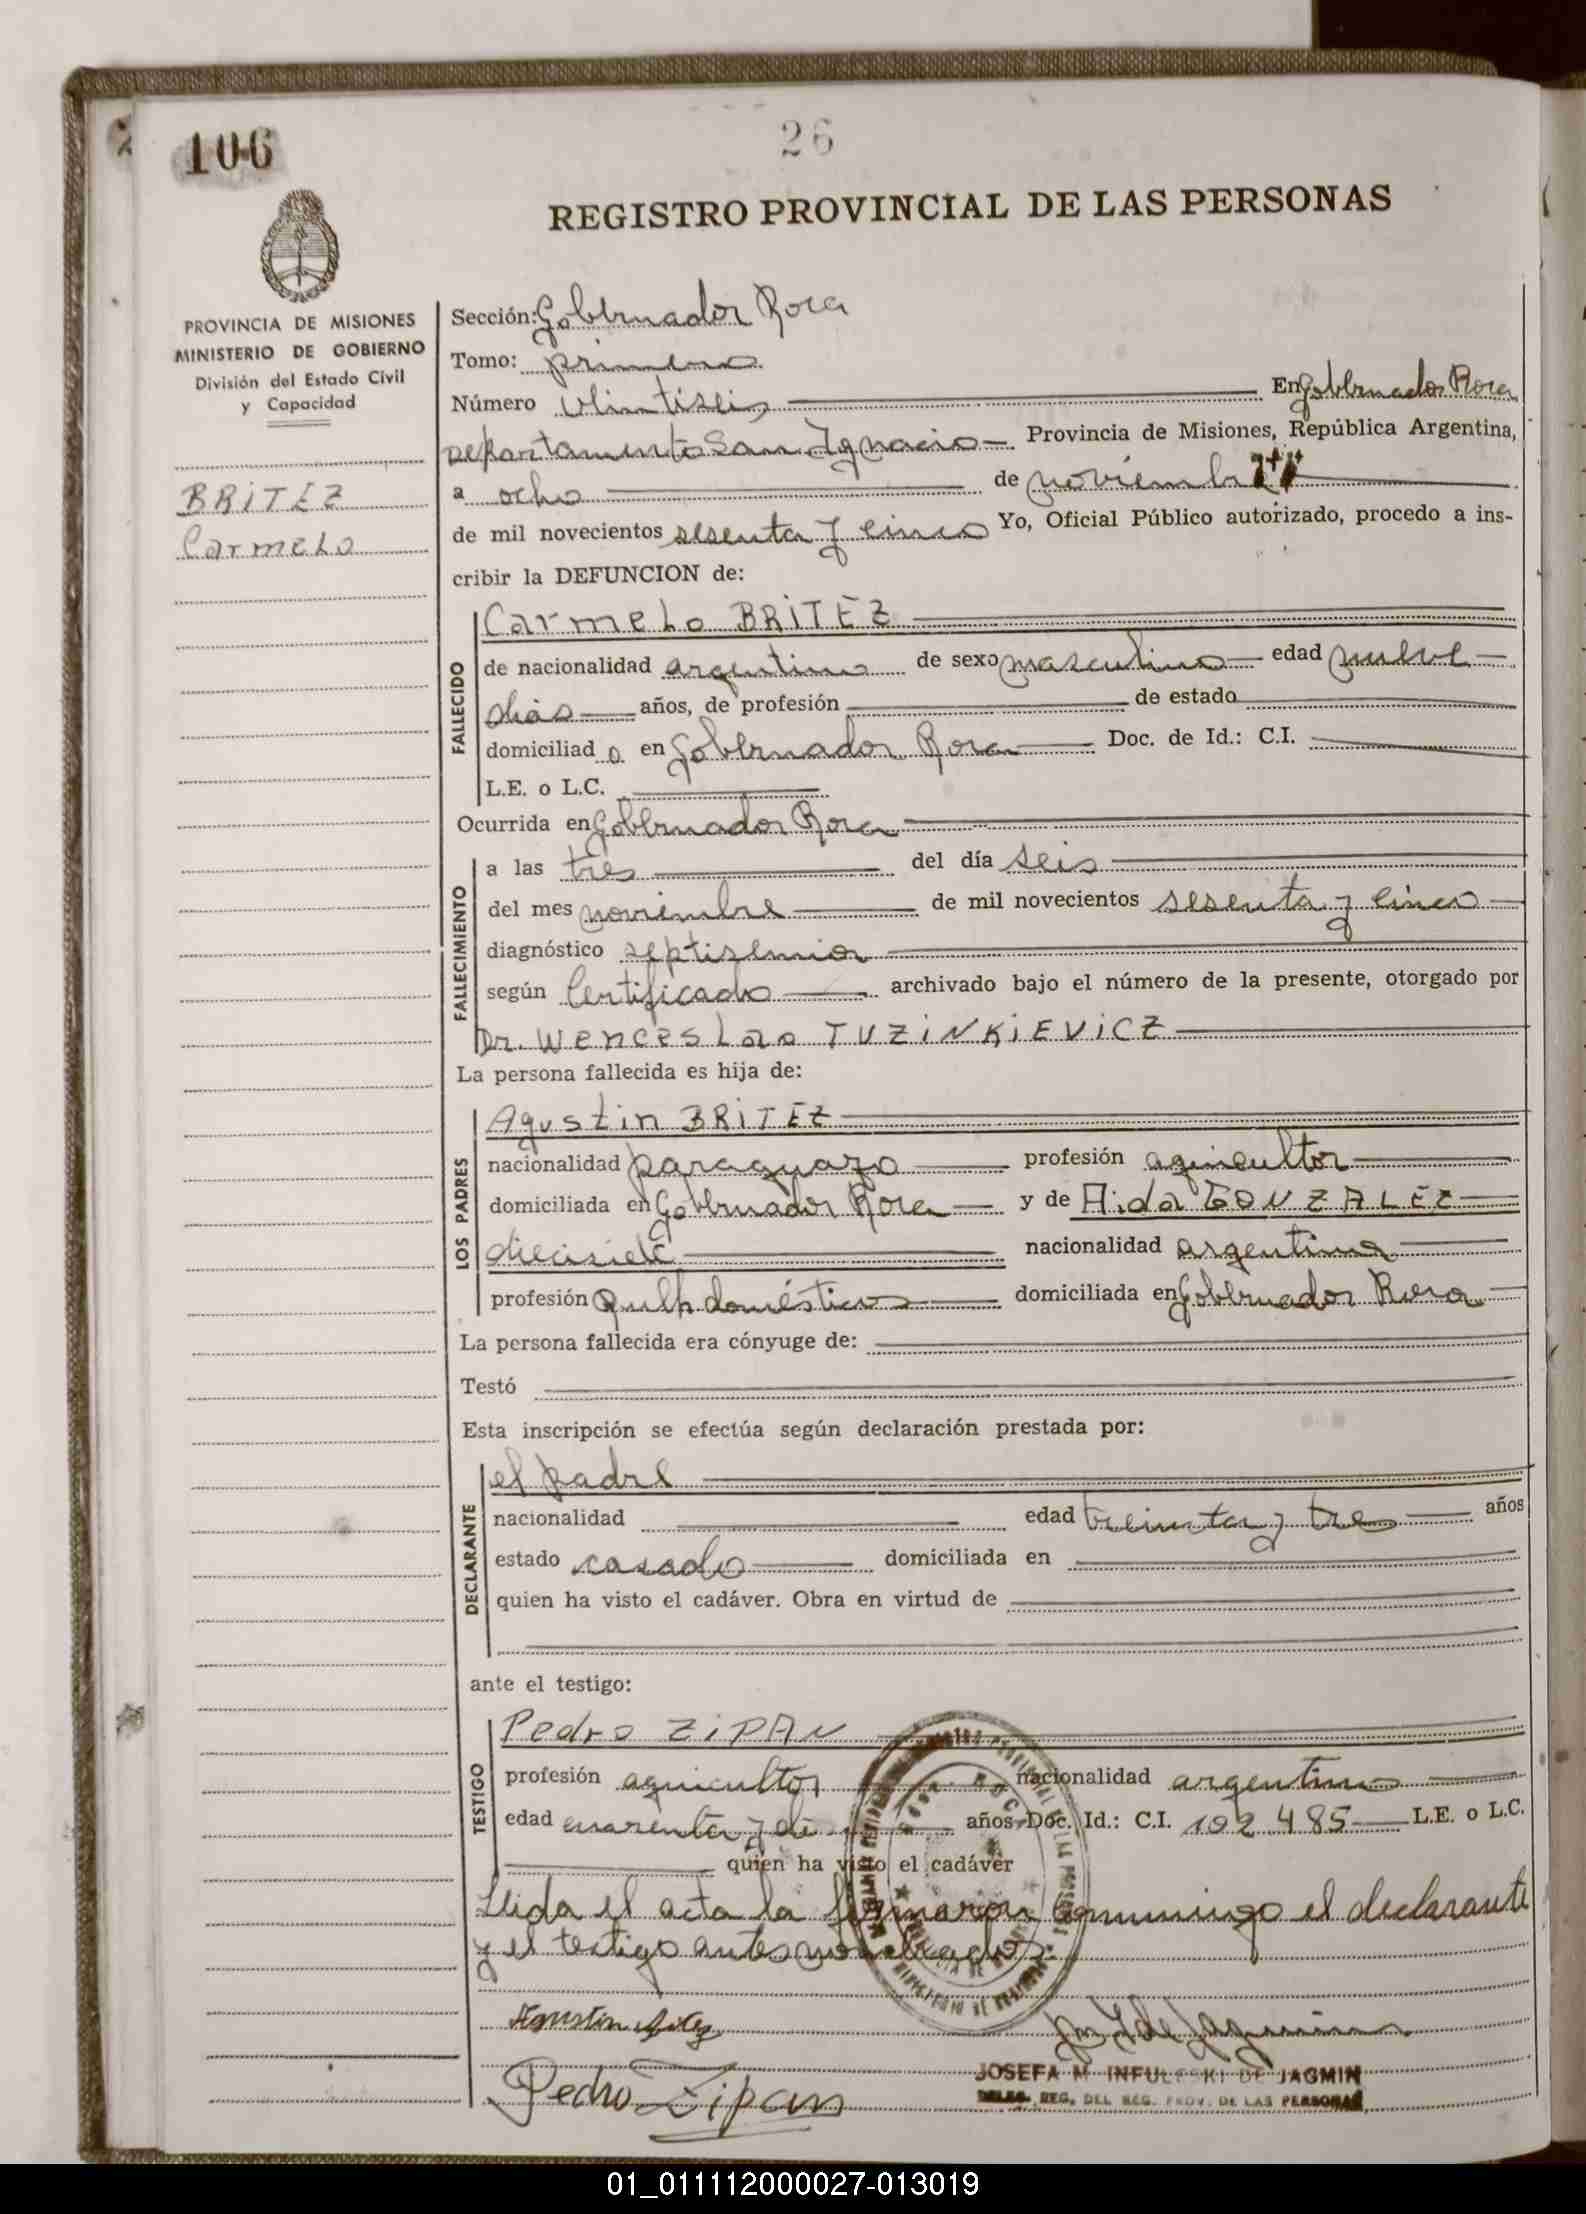 106
26
REGISTRO PROVINCIAL DE LAS PERSONAS
PROVINCIA DE MISIONES
MINISTERIO DE GOBIERNO
División del Estado Civil
y Capacidad
BRITEZ
Carmelo
Sección: Gobernador Roca
Tomo: primero
Número veintiseis En Gobernador Roca
Departamento San Ignacio Provincia de Misiones, República Argentina,
a ocho de noviembre
de mil novecientos sesenta y cinco Yo, Oficial Público autorizado, procedo a ins-
cribir la DEFUNCION de:
FALLECIDO
Carmelo BRITEZ
de nacionalidad argentino de sexo masculino edad nueve
dias años, de profesión de estado
domiciliad o en Gobernador Roca Doc. de Id.: C.I.
L.E. o L.C.
Ocurrida en Gobernador Roca
FALLECIMIENTO
a las tres del día seis
del mes noviembre de mil novecientos sesenta y cinco
diagnóstico septisemia
según Certificado archivado bajo el número de la presente, otorgado por
Dr. Wenceslao TUZINKIEVICZ
La persona fallecida es hija de:
LOS PADRES
Agustin BRITEZ
nacionalidad paraguayo profesión agricultor
domiciliada en Gobernador Roca y de Aida GONZALEZ
diecisiete nacionalidad argentina
profesión Queh. domésticos domiciliada en Gobernador Roca
La persona fallecida era cónyuge de:
Testó
Esta inscripción se efectúa según declaración prestada por:
DECLARANTE
el padre
nacionalidad edad treinta y tres años
estado casado domiciliada en
quien ha visto el cadáver. Obra en virtud de
ante el testigo:
TESTIGO
Pedro ZIPAN
profesión agricultor nacionalidad argentino
edad cuarenta y años Doc. Id.: C.I. 102.485 L.E. o L.C.
quien ha visto el cadáver
Leida el acta la firmaron conmigo el declarante
y el testigo antes nombrados.
Agustin Britez
Pedro Zipan
JOSEFA M. INFULESKI DE JAGMIN
DELEG. REG. DEL REG. PROV. DE LAS PERSONAS
01_011112000027-013019